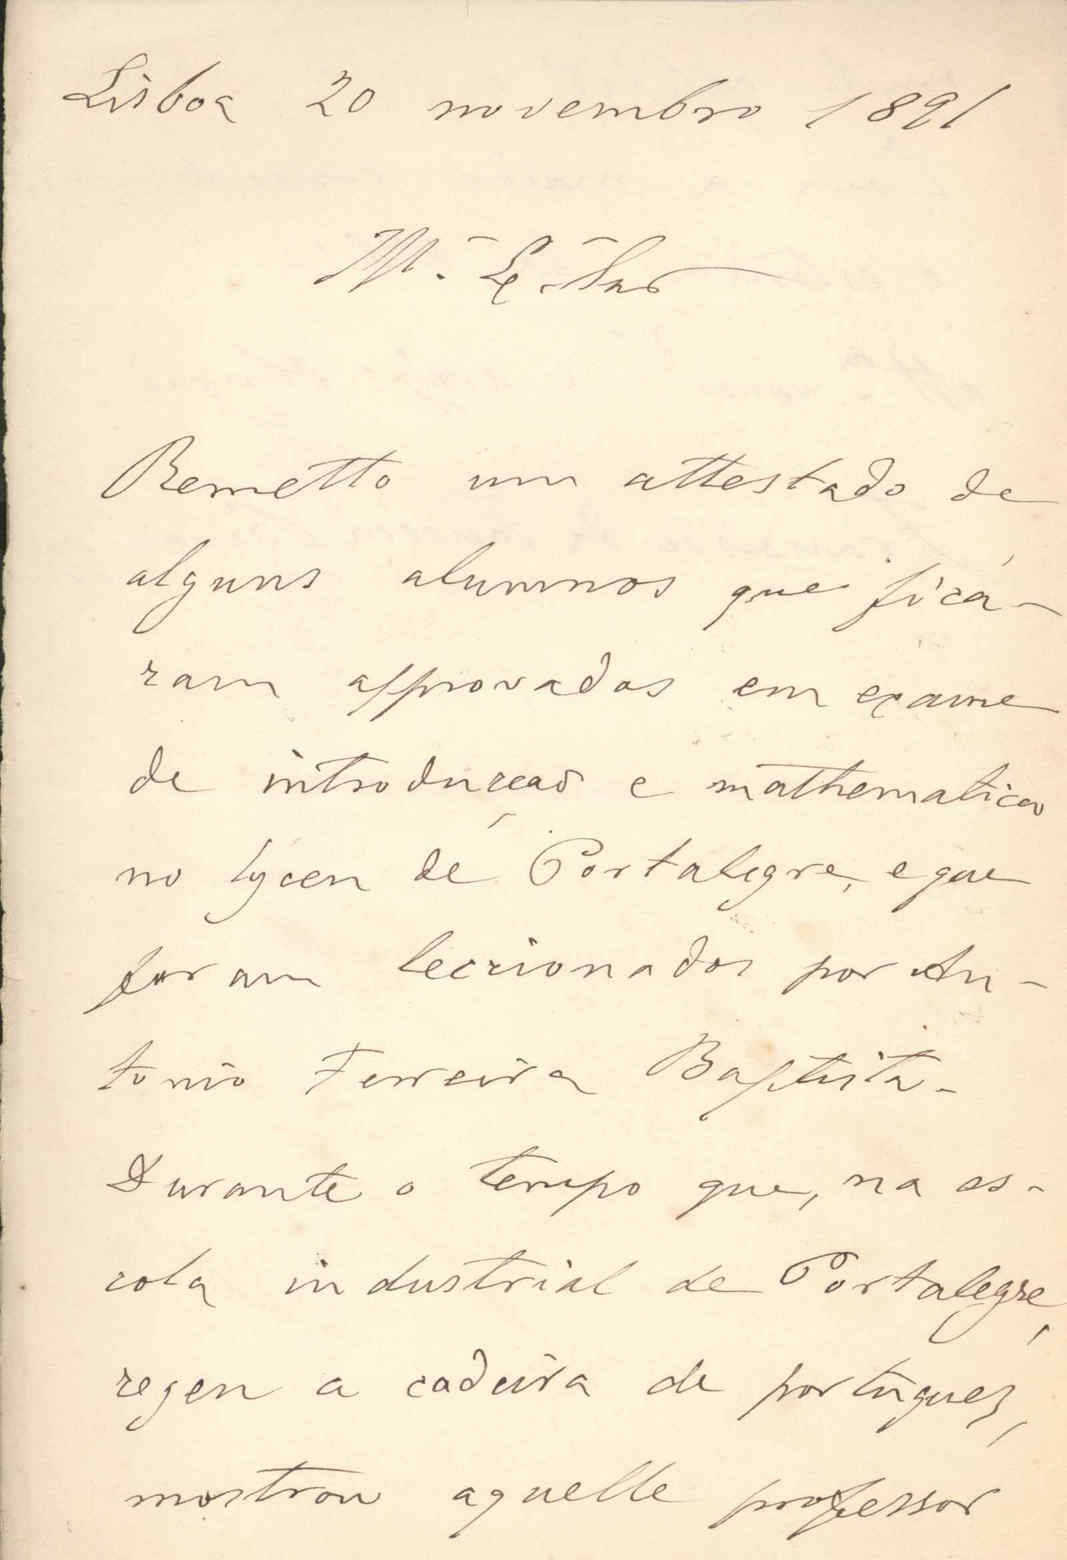 Lisboa 20 novembro 1891
Remetto um attestado de
alguns alumnos que ficá-
ram approvados em exame
de introducção e mathematica
no lyceu de Portalegre, e que
foram leccionados por An-
tonio Ferreira Baptista.
Durante o tempo que, na es-
cola industrial de Portalegre,
regeu a cadeira de portuguez,
mostrou aquelle professor